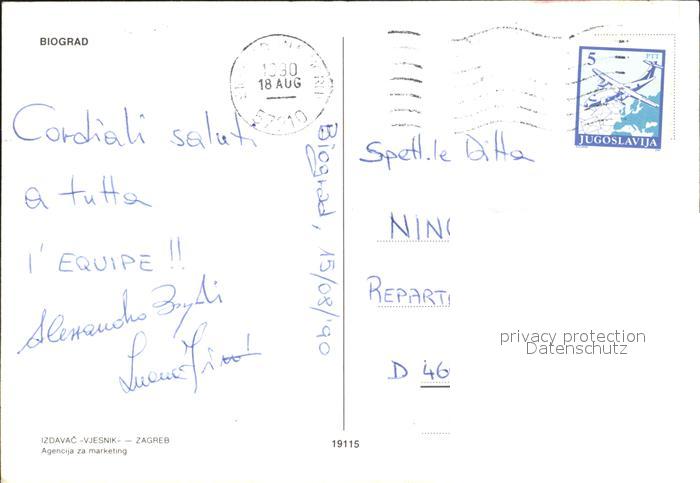 BIOGRAD
1990
18 AUG
57210
5
PTT
JUGOSLAVIJA
Cordiali saluti
a tutta
l'EQUIPE !!
Alessandro
Biograd, 15/08/90
Spett.le Ditta
NINO
REPARTI
D 46
privacy protection
Datenschutz
IZDAVAČ «VJESNIK» — ZAGREB
Agencija za marketing
19115